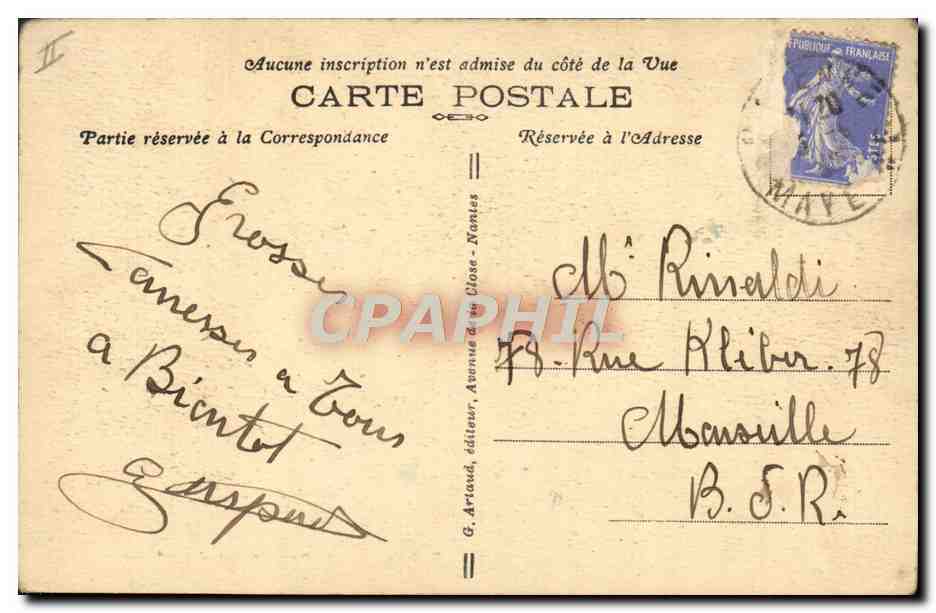 II
Aucune inscription n'est admise du côté de la Vue
CARTE POSTALE
Partie réservée à la Correspondance
Réservée à l'Adresse
RÉPUBLIQUE FRANÇAISE
MAYE
Grosses
Caresses a Tous
a Bientot
Gaspard
G. Artaud, éditeur, Avenue de la Close - Nantes
Mr Rinaldi
78 - Rue Kléber. 78
Marseille
B. d. R.
CPAPHIL